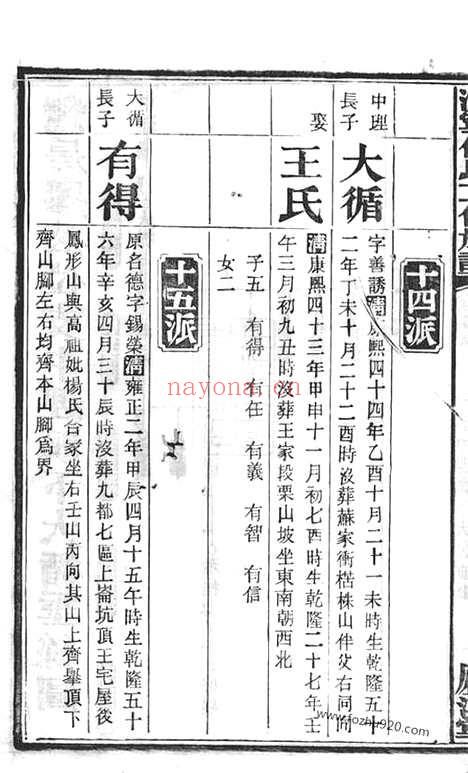 十四派
中理
長子
大循
字善誘清康熙四十四年乙酉十月二十一未時生乾隆五十
二年丁未十月二十二酉時沒葬蘇家衝楛株山伴父右同向
娶
王氏
清康熙四十三年甲申十一月初七酉時生乾隆二十七年壬
午三月初九丑時沒葬王家段栗山坡坐東南朝西北
子五 有得 有任 有義 有智 有信
女二
十五派
大循
長子
有得
原名德字錫榮清雍正二年甲辰四月十五午時生乾隆五十
六年辛亥四月三十辰時沒葬九都七區上崙坑頂王宅屋後
鳳形山與高祖妣楊氏合冢坐右壬山丙向其山上齊舉頂下
齊山腳左右均齊本山腳爲界
nayona.cn
www.fozhu920.com